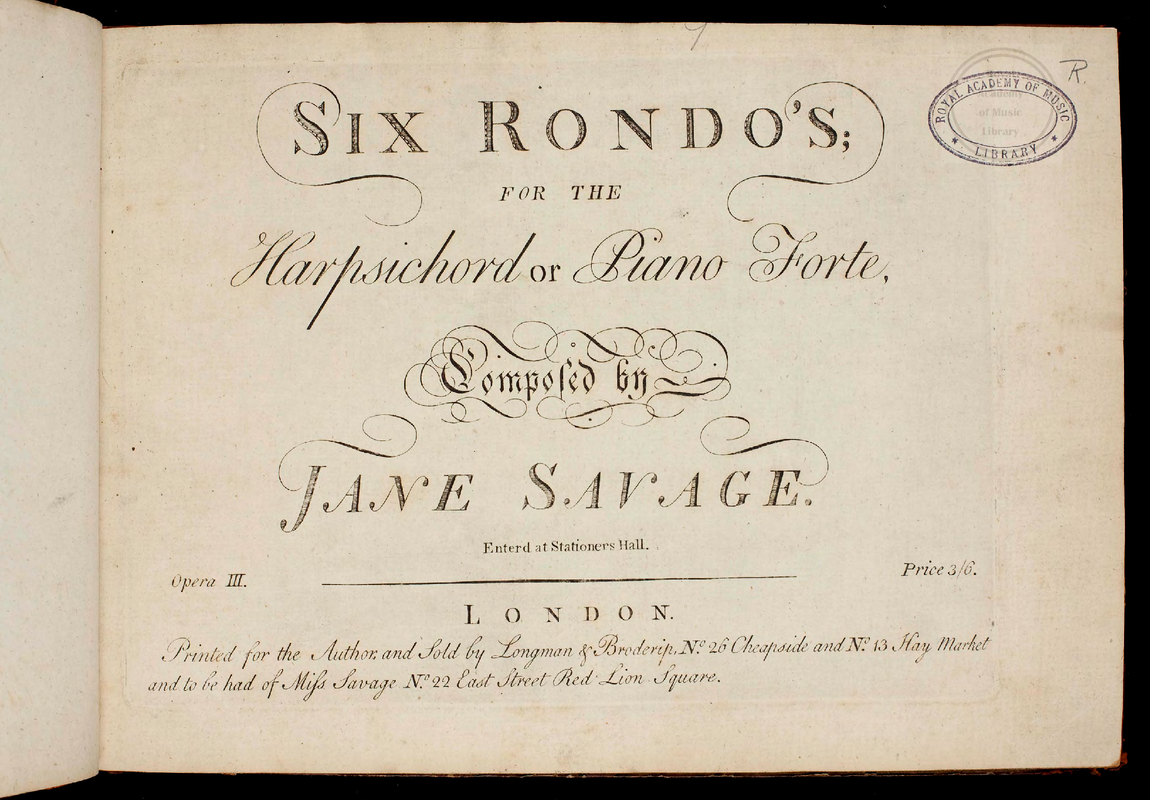 SIX RONDO'S;
FOR THE
Harpsichord or Piano Forte,
Compoſed by
JANE SAVAGE.
Enterd at Stationers Hall.
Opera III.
Price 3/6.
LONDON.
Printed for the Author, and Sold by Longman & Broderip, No. 26 Cheapside and No. 13 Hay Market
and to be had of Miſs Savage No. 22 East Street Red Lion Square.
ROYAL ACADEMY OF MUSIC
LIBRARY
of Music
Library
R.